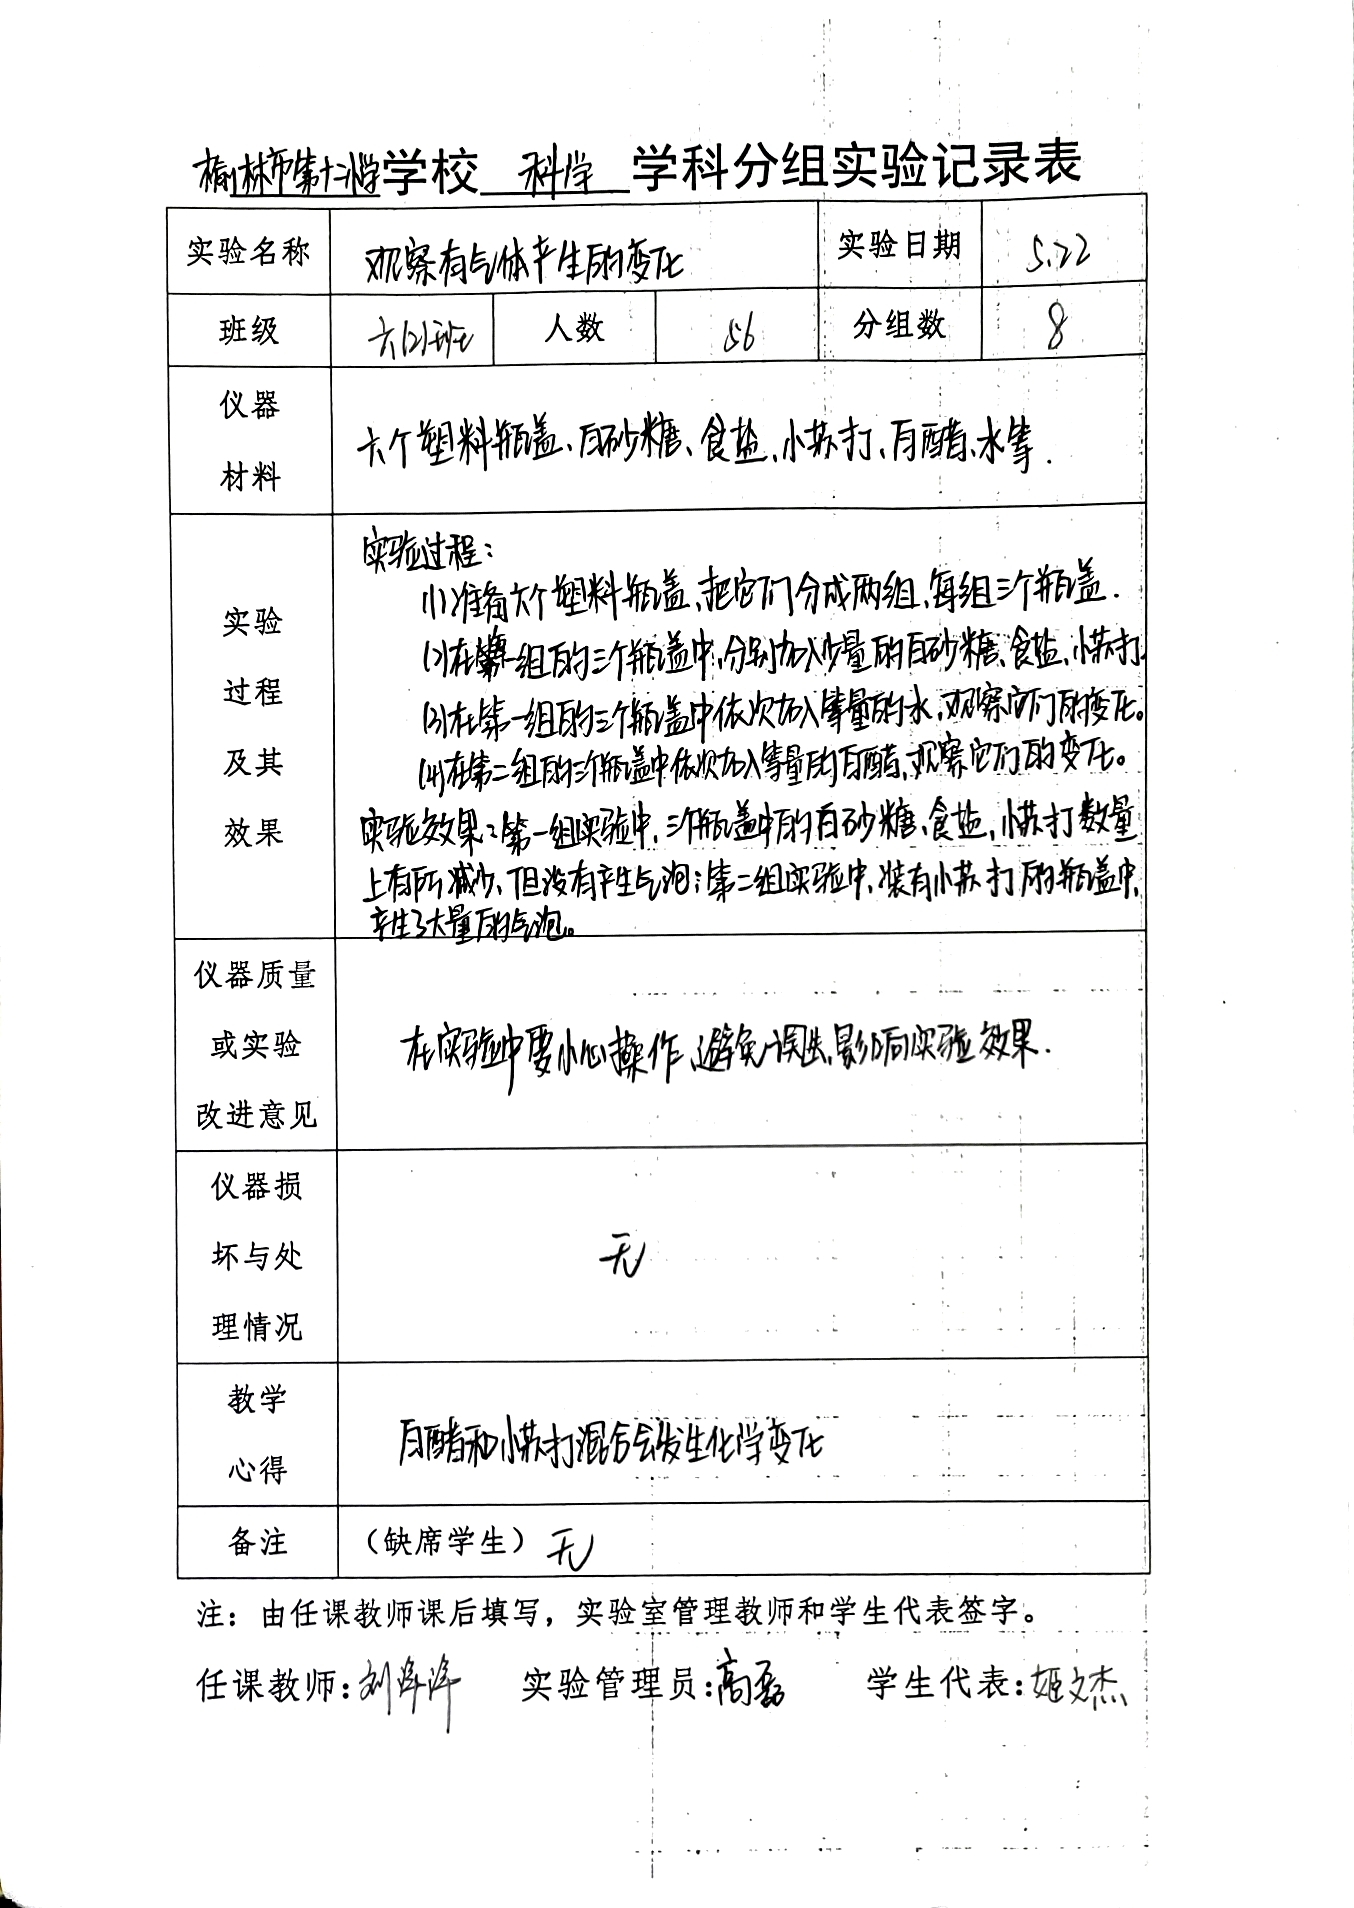 榆林市第十二小学学校 科学 学科分组实验记录表
实验名称 观察有气体产生的变化 实验日期 5.22
班级 六(2)班 人数 56 分组数 8
仪器
材料
六个塑料瓶盖、白砂糖、食盐、小苏打、白醋、水等.
实验
过程
及其
效果
实验过程：
(1)准备六个塑料瓶盖、把它们分成两组,每组三个瓶盖.
(2)在每一组的三个瓶盖中,分别加入少量的白砂糖、食盐、小苏打.
(3)在第一组的三个瓶盖中依次加入等量的水,观察它们的变化。
(4)在第二组的三个瓶盖中依次加入等量的白醋,观察它们的变化。
实验效果：第一组实验中,三个瓶盖中的白砂糖、食盐、小苏打数量
上有所减少,但没有产生气泡；第二组实验中,装有小苏打的瓶盖中,
产生了大量的气泡。
仪器质量
或实验
改进意见
在实验中要小心操作,避免误失,影响实验效果.
仪器损
坏与处
理情况
无
教学
心得
白醋和小苏打混合会发生化学变化
备注 （缺席学生）无
注：由任课教师课后填写，实验室管理教师和学生代表签字。
任课教师:刘洋洋 实验管理员:高磊 学生代表:姬文杰